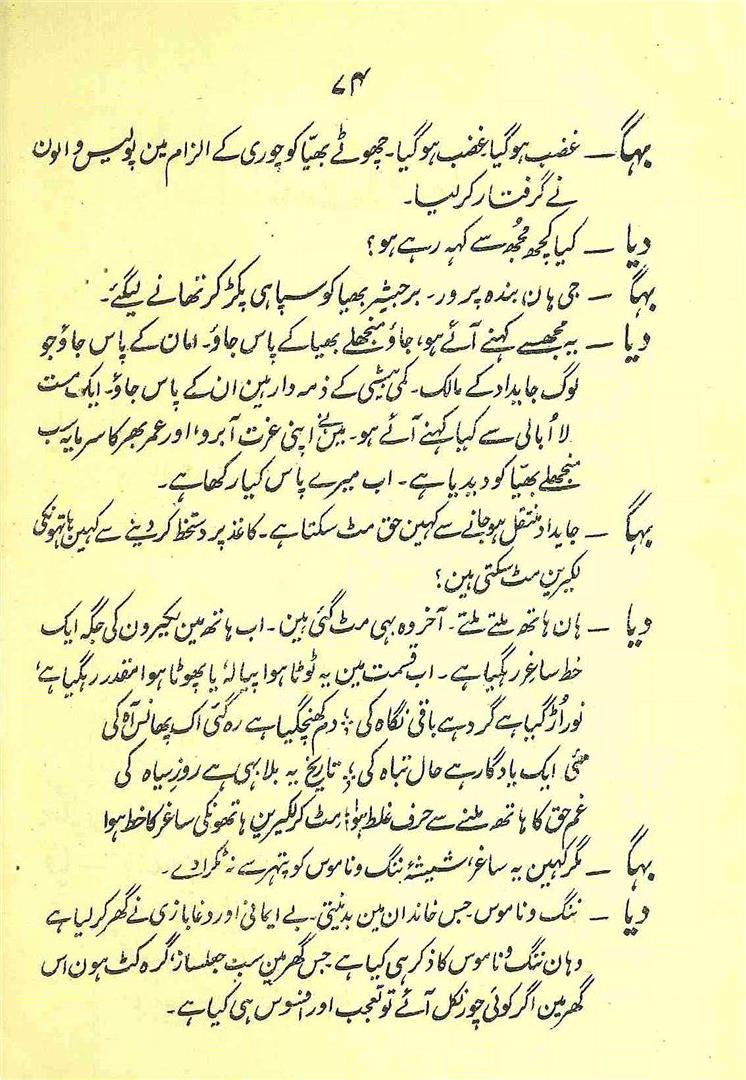 ۷۴
بھاگ — غضب ہوگیا۔ غضب ہوگیا۔ چھوٹے بھیّا کو چوری کے الزام مین پولیس والون
نے گرفتار کرلیا۔
دیا — کیا کچھ مجھ سے کہہ رہے ہو؟
بھاگ — جی ہان، بندہ پرور۔ برجیشر بھیا کو سپاہی پکڑ کر تھانے لیگئے۔
دیا — یہ مجھسے کہنے آئے ہو، جاؤ منجھلے بھیا کے پاس جاؤ۔ امان کے پاس جاؤ جو
لوگ جایداد کے مالک۔ کمی بیشی کے ذمہ دار ہین ان کے پاس جاؤ۔ ایک مست
لا اُبالی سے کیا کہنے آئے ہو۔ مینے اپنی عزت آبرو، اور عمر بھر کا سرمایہ سب
منجھلے بھیّا کو دیدیا ہے۔ اب میرے پاس کیا رکھا ہے۔
بھاگ — جایداد منتقل ہوجانے سے کہین حق مٹ سکتا ہے۔ کاغذ پر دستخط کردینے سے کہین ہاتھونکی
لکیرین مٹ سکتی ہین؟
دیا — ہان ہاتھ ملتے ملتے۔ آخر وہ بھی مٹ گئی ہین۔ اب ہاتھ مین لکیرون کی جگہ ایک
خط ساغر رہگیا ہے۔ اب قسمت مین یہ ٹوٹا ہوا پیالہ، یا پھوٹا ہوا مقدر رہگیا ہے،
نور اُڑ گیا ہے گرد ہے باقی نگاہ کی ؛ دم کھنچگیا ہے رہ گئی اک پھانس آہ کی
مٹی ایک یادگار ہے حال تباہ کی ؛ تاریخ یہ بلا ہی ہے روزِ سیاہ کی
غم حق کا ہاتھ ملنے سے حرف غلط ہوا ؛ مٹ کر لکیرین ہاتھونکی ساغر کا خط ہوا
بھاگ — مگر کہین یہ ساغر، شیشۂ ننگ و ناموس کو پتھر سے نہ ٹکرا دے۔
دیا — ننگ و ناموس جس خاندان مین بدنیتی۔ بے ایمانی اور دغابازی نے گھر کرلیا ہے
وہان ننگ و ناموس کا ذکر ہی کیا ہے۔ جس گھر مین سب جعلساز، گرہ کٹ ہون اس
گھر مین اگر کوئی چور نکل آئے تو تعجب اور افسوس ہی کیا ہے۔